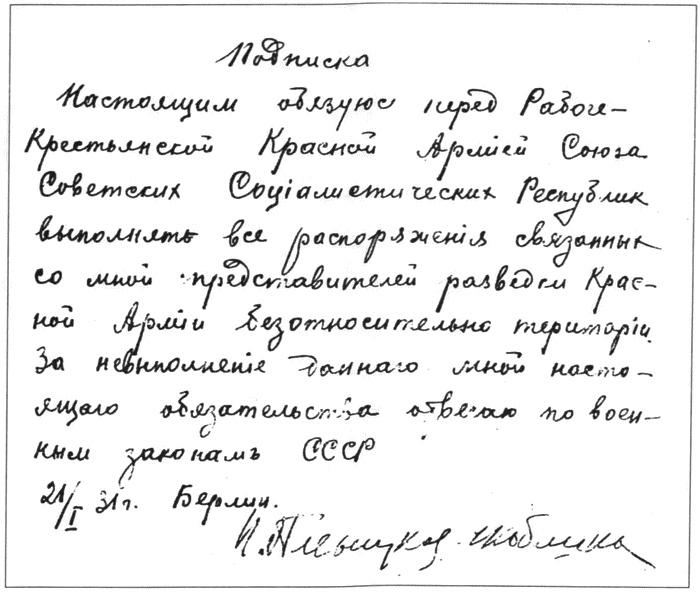 Подписка
Настоящим обязуюс перед Рабоче-
Крестьянской Красной Армiей Союза
Советских Соцiалистических Республик
выполнять все распоряженiя связанных
со мной представителей разведки Крас-
ной Армiи безотносительно територiи.
За невыполненiе даннаго мной насто-
ящаго обязательства отвечаю по воен-
ным законамъ СССР
21/I 31г. Берлин.
Н. Плевицкая